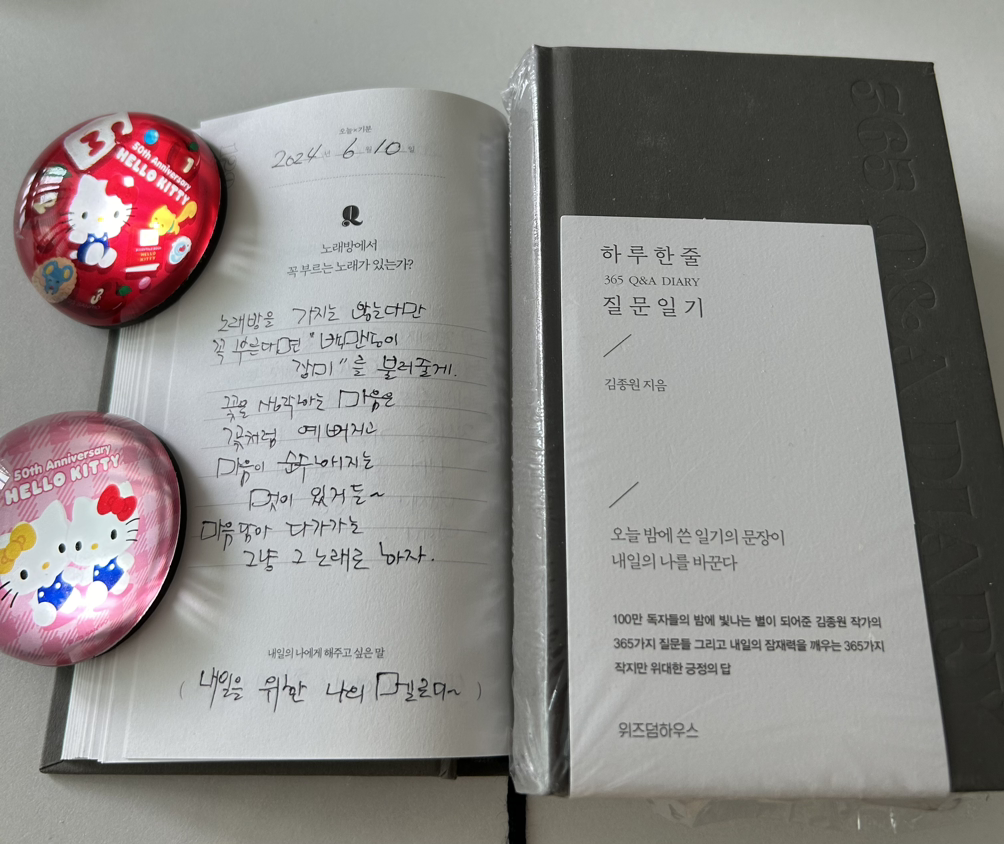 50th Anniversary
HELLO KITTY
50th Anniversary
HELLO KITTY
오늘의 기분
2024 년 6 월 10 일
Q
노래방에서
꼭 부르는 노래가 있는가?
노래방을 가지는 않는다만
꼭 부른다면 "백만송이
장미"를 불러줄게.
꽃을 생각하는 마음은
꽃처럼 예뻐지고
마음이 순수해지는
멋이 있거든~
마음담아 다가가는
그냥 그 노래로 하자.
내일의 나에게 해주고 싶은 말
( 내일을 위한 나의 멜로디~ )
365 Q&A DIARY
하루 한 줄
365 Q&A DIARY
질문 일기
김종원 지음
오늘 밤에 쓴 일기의 문장이
내일의 나를 바꾼다
100만 독자들의 밤에 빛나는 별이 되어준 김종원 작가의
365가지 질문들 그리고 내일의 잠재력을 깨우는 365가지
작지만 위대한 긍정의 답
위즈덤하우스